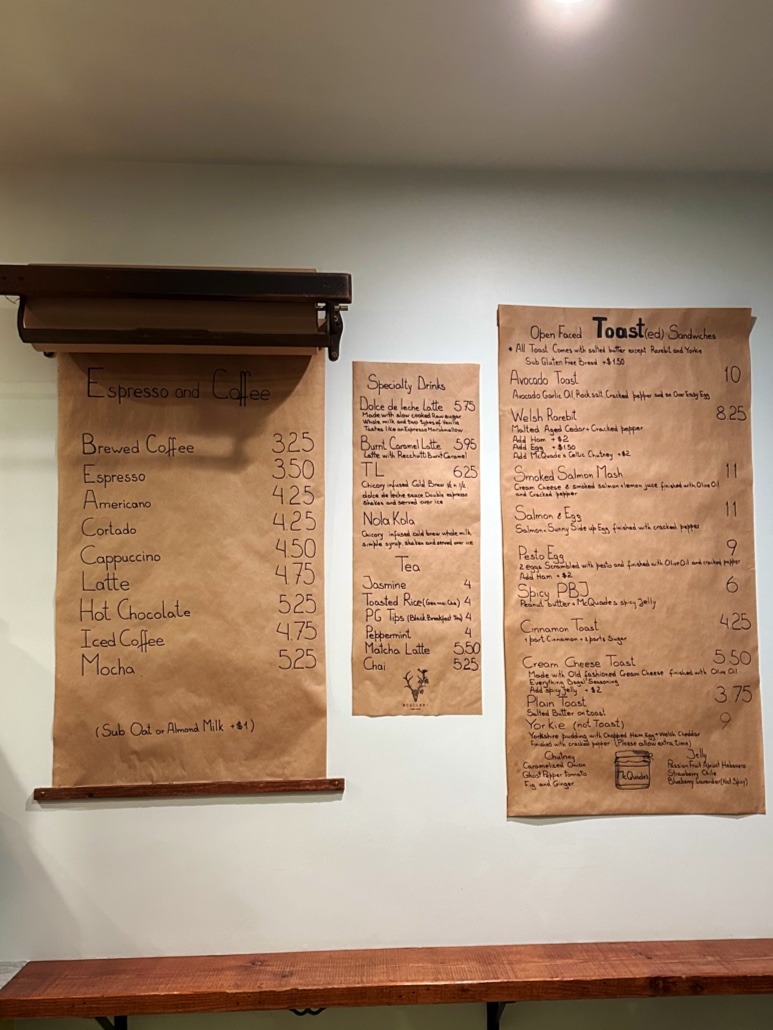 Espresso and Coffee
Brewed Coffee 3.25
Espresso 3.50
Americano 4.25
Cortado 4.25
Cappuccino 4.50
Latte 4.75
Hot Chocolate 5.25
Iced Coffee 4.75
Mocha 5.25
(Sub Oat or Almond Milk +$1)
Specialty Drinks
Dolce de leche Latte 5.75
Made with slow cooked Raw sugar
Whole milk and two types of Vanilla
Tastes like an Espresso Marshmallow
Burnt Caramel Latte 5.95
Latte with Recchiuti Burnt Caramel
TL 6.25
Chicory infused Cold Brew
dolce de leche sauce Double espresso
Shaken and served over ice
Nola Kola
Chicory infused cold brew whole milk
simple syrup, shaken and served over ice
Tea
Jasmine 4
Toasted Rice (Genmai Cha) 4
PG Tips (Black Breakfast Tea) 4
Peppermint 4
Matcha Latte 5.50
Chai 5.25
Open Faced Toast(ed) Sandwiches
• All Toast Comes with salted butter except Rarebit and Yorkie
Sub Gluten Free Bread +$1.50
Avocado Toast 10
Avocado Garlic Oil, Rock salt, Cracked pepper and an Over Easy Egg
Welsh Rarebit 8.25
Malted Aged Cedar + Cracked pepper
Add Ham +$2
Add Egg +$1.50
Add McQuade's Celtic Chutney +$2
Smoked Salmon Mash 11
Cream Cheese & smoked salmon + lemon juice finished with Olive Oil
and Cracked pepper
Salmon & Egg 11
Salmon + Sunny Side up Egg finished with cracked pepper
Pesto Egg 9
2 eggs Scrambled with pesto and finished with Olive Oil and cracked pepper
Add Ham +$2
Spicy PBJ 6
Peanut butter + McQuades spicy Jelly
Cinnamon Toast 4.25
1 part Cinnamon + 2 parts Sugar
Cream Cheese Toast 5.50
Made with Old fashioned Cream Cheese finished with Olive Oil
Everything Bagel Seasoning
Add spicy Jelly +$2
Plain Toast 3.75
Salted Butter on toast
Yorkie (not Toast) 9
Yorkshire pudding with Chopped Ham Egg + Welsh Cheddar
Finished with cracked pepper (Please allow extra time)
Chutney
Caramelized Onion
Ghost Pepper tomato
Fig and Ginger
McQuades
Jelly
Passion Fruit Apricot Habanero
Strawberry Chile
Blueberry Lavender (Not Spicy)